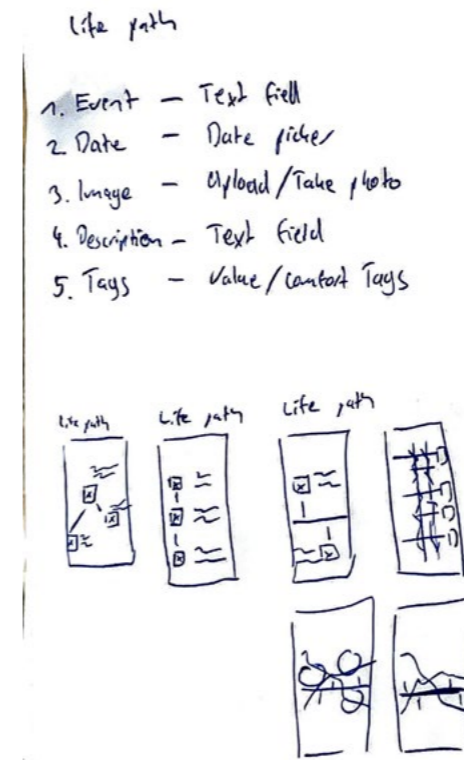 Life path
1. Event – Text field
2. Date – Date picker
3. Image – Upload/Take photo
4. Description – Text field
5. Tags – Value/comfort Tags
Life path
Life path
Life path